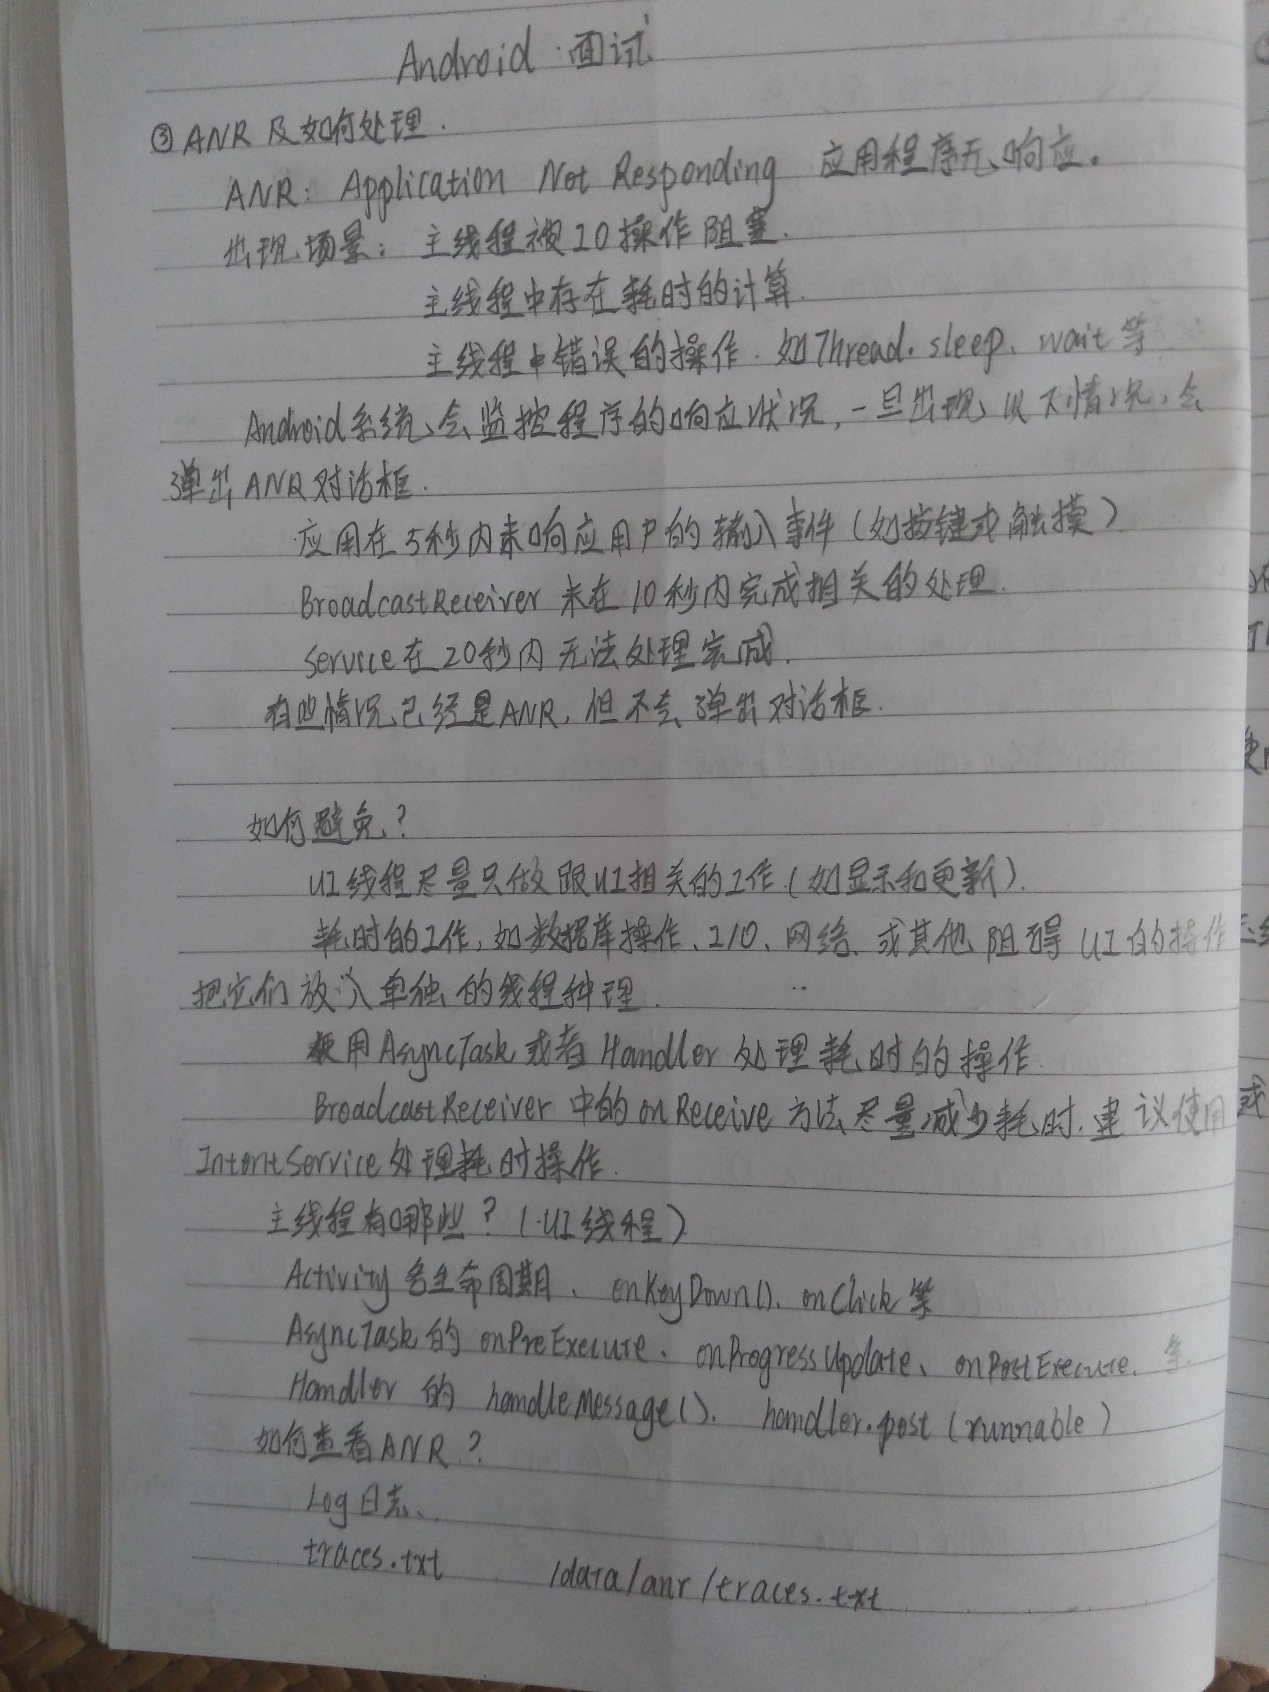 Android:面试
③ ANR及如何处理.
ANR: Application Not Responding 应用程序无响应.
出现场景: 主线程被IO操作阻塞.
主线程中存在耗时的计算.
主线程中错误的操作.如Thread.sleep、wait等
Android系统会监控程序的响应状况,一旦出现以下情况,会
弹出ANR对话框.
应用在5秒内未响应用户的输入事件(如按键或触摸)
BroadcastReceiver未在10秒内完成相关的处理.
Service在20秒内无法处理完成.
有些情况已经是ANR,但不会弹出对话框.
如何避免?
UI线程尽量只做跟UI相关的工作(如显示和更新).
耗时的工作,如数据库操作、I/O、网络、或其他阻碍UI的操作
把它们放入单独的线程种理.
使用AsyncTask或者Handler处理耗时的操作.
BroadcastReceiver中的onReceive方法尽量减少耗时.建议使用
IntentService处理耗时操作.
主线程有哪些?(UI线程)
Activity各生命周期、onKeyDown()、onClick等
AsyncTask的onPreExecute、onProgressUpdate、onPostExecute.等
Handler的handleMessage()、handler.post(runnable)
如何查看ANR?
Log日志、
traces.txt /data/anr/traces.txt